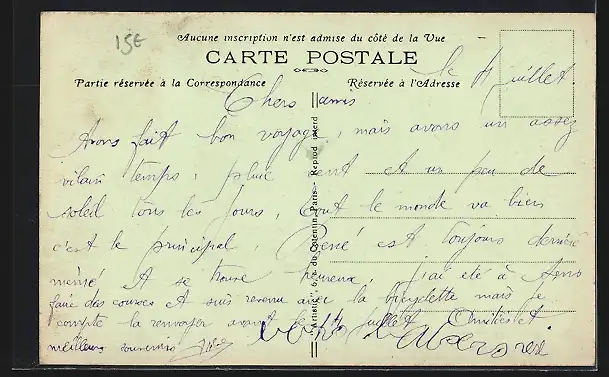 15E
Aucune inscription n'est admise du côté de la Vue
CARTE POSTALE
Partie réservée à la Correspondance
Réservée à l'Adresse
le 4 juillet
Chers amis
Avons fait bon voyage, mais avons un assez
vilain temps, pluie vent et un peu de
soleil tous les jours, tout le monde va bien
c'est le principal, René est toujours derrière
mémé et se trouve heureux, j'ai été à
faire des courses et suis revenu avec la bicyclette mais je
compte la renvoyer avant le juillet Amitiés et
meilleurs souvenirs
"Artistic", 6, r. du Cotentin, Paris - Reprod. interd